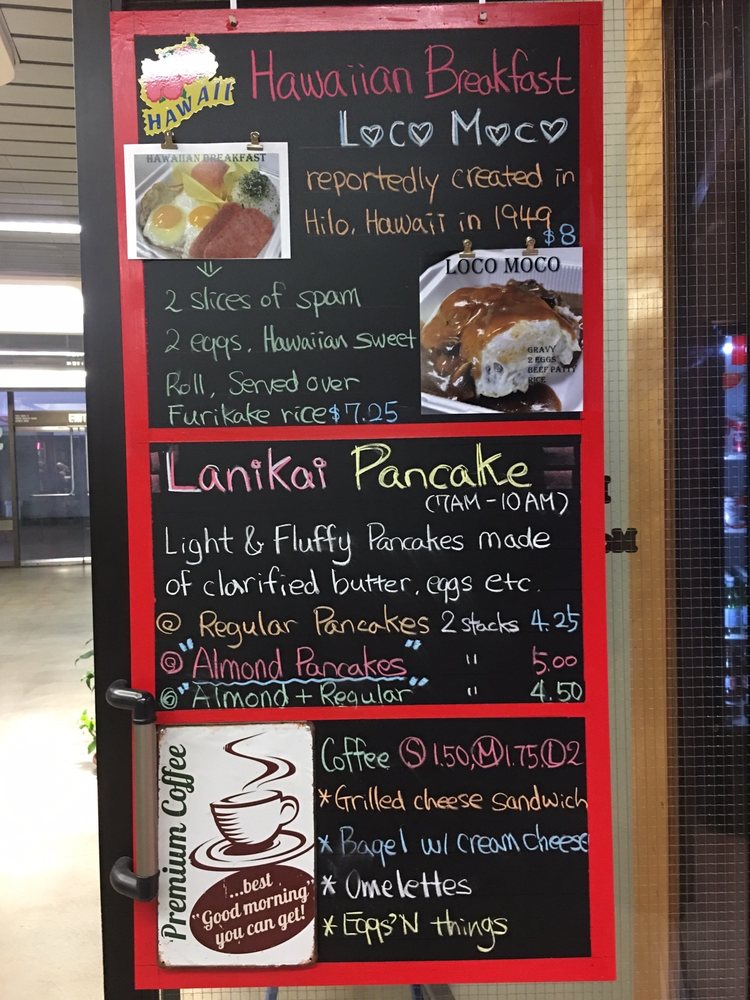 HAWAII
Hawaiian Breakfast
Loco Moco
HAWAIIAN BREAKFAST
reportedly created in
Hilo, Hawaii in 1949
$8
LOCO MOCO
GRAVY
2 EGGS
BEEF PATTY
RICE
2 slices of spam
2 eggs, Hawaiian sweet
Roll, Served over
Furikake rice $7.25
Lanikai Pancake
(7AM - 10AM)
Light & Fluffy Pancakes made
of clarified butter, eggs etc.
@ Regular Pancakes 2 stacks 4.25
"Almond Pancakes" " 5.00
"Almond + Regular" " 4.50
Premium Coffee
...best
"Good morning"
you can get!
Coffee S 1.50, M 1.75, L 2
* Grilled cheese sandwich
* Bagel w/ cream cheese
* Omelettes
* Eggs'N things